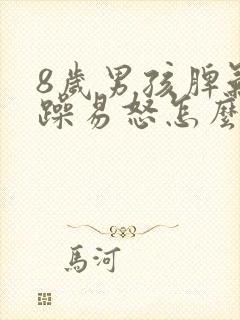 8歲男孩脾氣
躁易怒怎麼
馬河